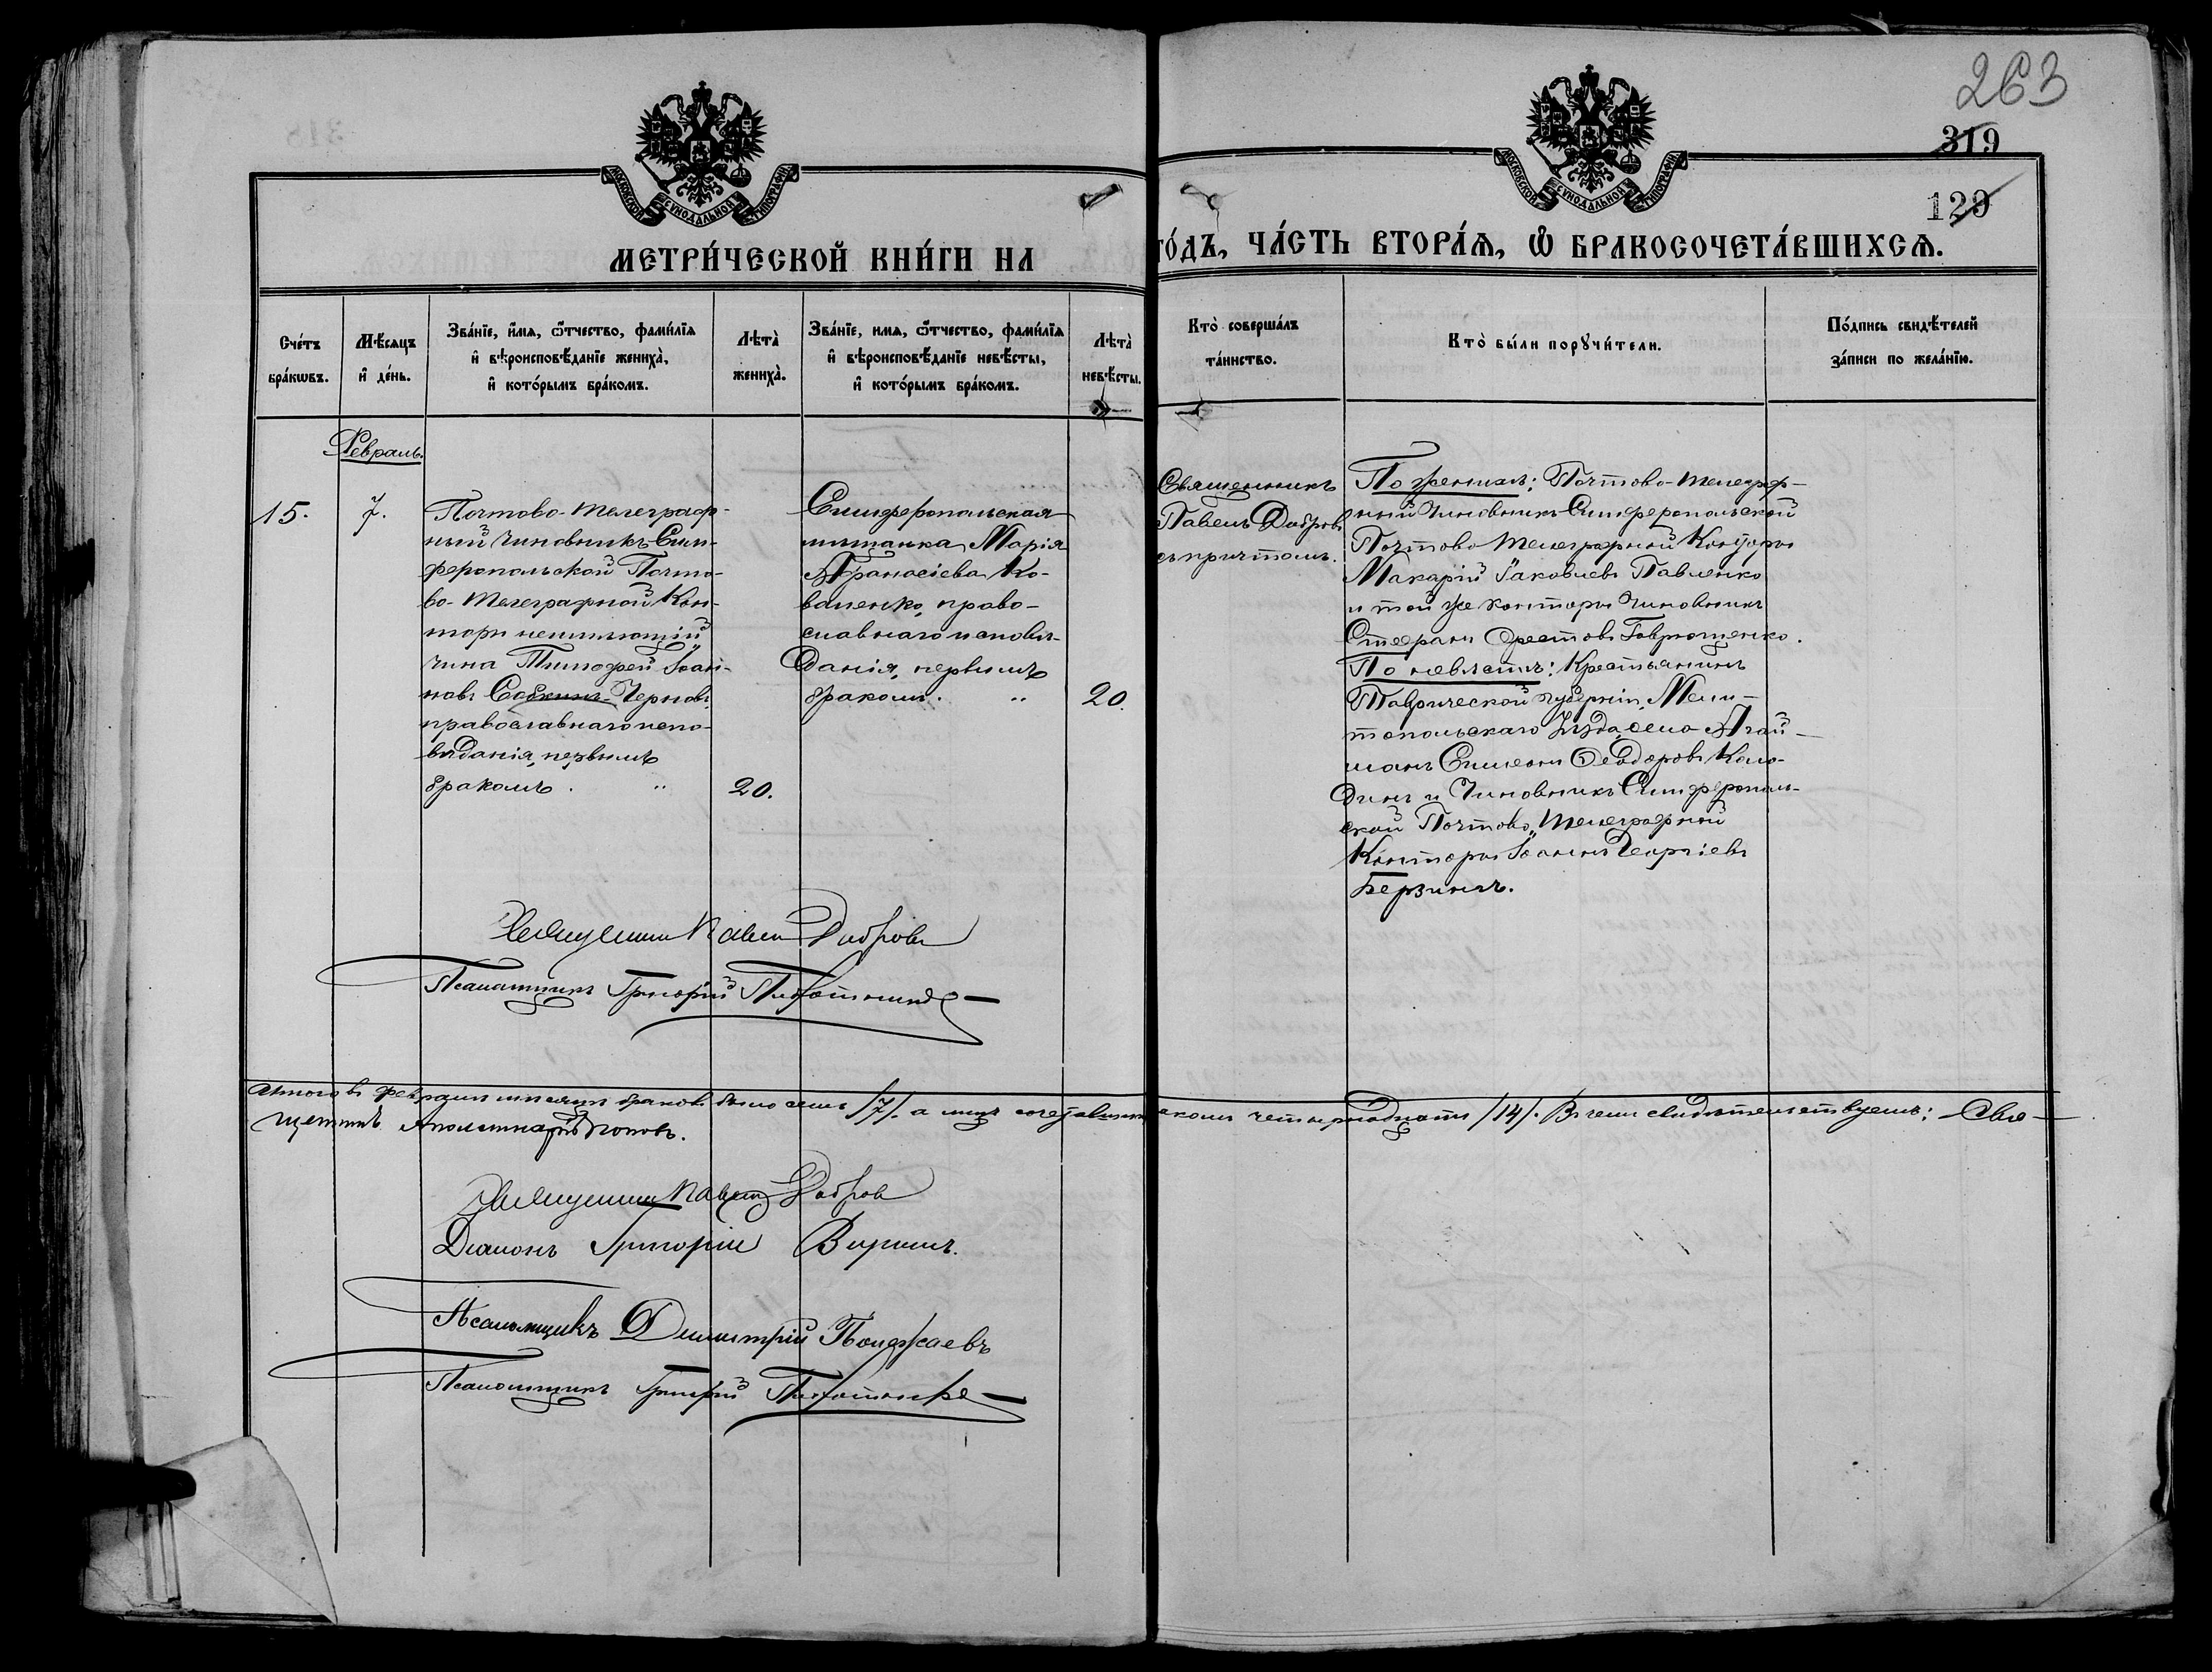 263
319
129
МОСКОВСКОЙ СѴНОДАЛЬНОЙ ТИПОГРАФІИ
МОСКОВСКОЙ СѴНОДАЛЬНОЙ ТИПОГРАФІИ
МЕТРИ́ЧЕСКОЙ КНИ́ГИ НА
ГО́ДЪ, ЧА́СТЬ ВТОРА́Ѧ, Ѽ БРАКОСОЧЕТА́ВШИХСѦ.
Сче́тъ
бра́кѡвъ.
Мѣ́сяцъ
и҆ де́нь.
Зва́нїе, и҆́мѧ, ѻ҆́тчество, фами́лїѧ
и҆ вѣроисповѣ́данїе жениха̀,
и҆ кото́рымъ бра́комъ.
Лѣта̀
жениха̀.
Зва́нїе, имѧ, ѻ҆́тчество, фами́лїѧ
и҆ вѣроисповѣ́данїе невѣ́сты,
и҆ кото́рымъ бра́комъ.
Лѣта̀
невѣ́сты.
Кто̀ соверша́лъ
та́инство.
Кто̀ бы́ли порꙋчи́тели.
По́дпись свидѣ́телей
за́писи по жела́нїю.
Февраль.
15.
7.
Почтово-телеграф-
ный чиновникъ Сим-
феропольской Почто-
во-телеграфной Кон-
торы неимѣющій
чина Тимофей Іоан-
новъ Собкинъ-Черновъ,
православнаго испо-
вѣданія, первымъ
бракомъ. "
20.
Симферопольская
мѣщанка Марія
Афанасіева Ко-
валенко, право-
славнаго исповѣ-
данія, первымъ
бракомъ. "
20.
Священникъ
Павелъ Добровъ
съ причтомъ.
По женихѣ: Почтово-телеграф-
ный чиновникъ Симферопольской
Почтово телеграфной Конторы
Макарій Іаковлевъ Павленко
и той же конторы чиновникъ
Стефанъ Орестовъ Гаврющенко.
По невѣстѣ: Крестьянинъ
Таврической губерніи, Мели-
топольскаго уѣзда, села Агай-
манъ Симеонъ Ѳеодоровъ Коло-
динъ и Чиновникъ Симферополь-
ской Почтово-телеграфной
Конторы Іоаннъ Георгіевъ
Берзинъ.
Священникъ Павелъ Добровъ
Псаломщикъ Григорій
Итого въ февралѣ мѣсяцѣ браковъ было семь /7/, а лицъ сочетавшихся коимъ четырнадцать /14/. В чемъ свидѣтельствуемъ: Свя-
щенникъ Аполлинарій Поповъ.
Священникъ Павелъ Добровъ
Діаконъ Григорій
Псаломщикъ Димитрій
Псаломщикъ Григорій